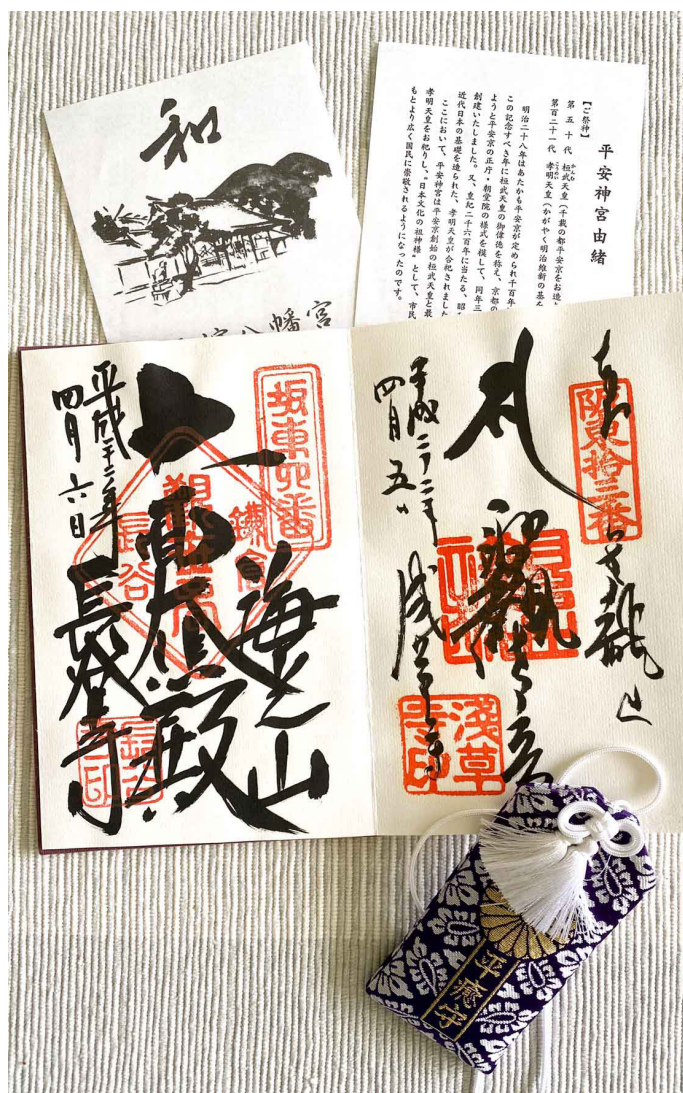 和
八幡宮
平安神宮由緒
【ご祭神】
第五十代 桓武天皇(千載の都平安京をお造
第百二十一代 孝明天皇(かがやく明治維新の基を
明治二十八年はあたかも平安京が定められ千百年
この記念すべき年に桓武天皇の御偉徳を称え、京都の
ようと平安京の正庁・朝堂院の様式を模して、同年三
創建いたしました。又、皇紀二千六百年に当たる、昭
近代日本の基礎を造られた、孝明天皇が合祀されました
ここにおいて、平安神宮は平安京創始の桓武天皇と最
孝明天皇をお祀りし、"日本文化の祖神様"として、市民
もとより広く国民に崇敬されるようになったのです。
阪東拾三番
龍山
観世音
平成二十二年
四月五日
浅草寺
淺草寺印
坂東四番
海光山
鎌倉
観世音
長谷
殿
長谷寺
平成二十二年
四月六日
平癒守